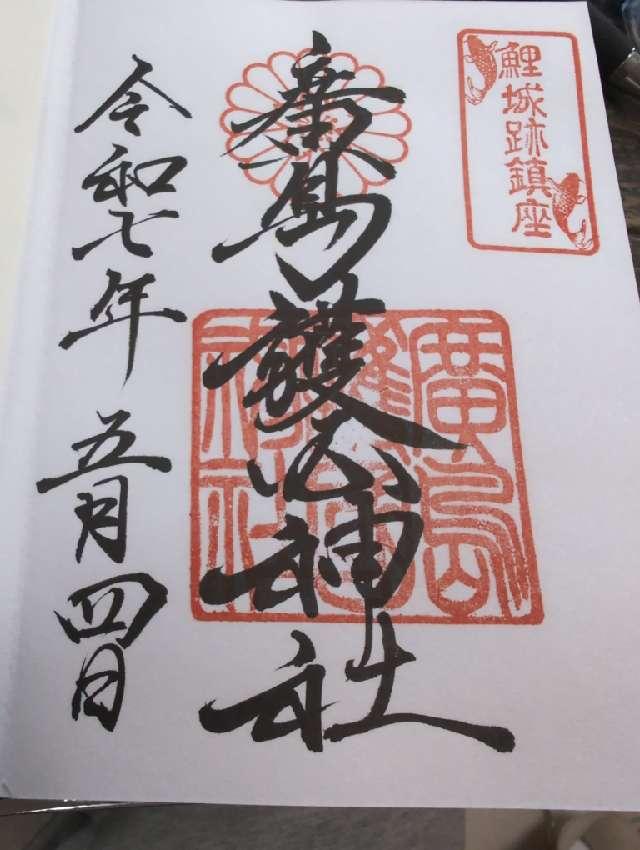 鯉城跡鎮座
廣島護国神社
廣島護國神社
令和七年五月四日